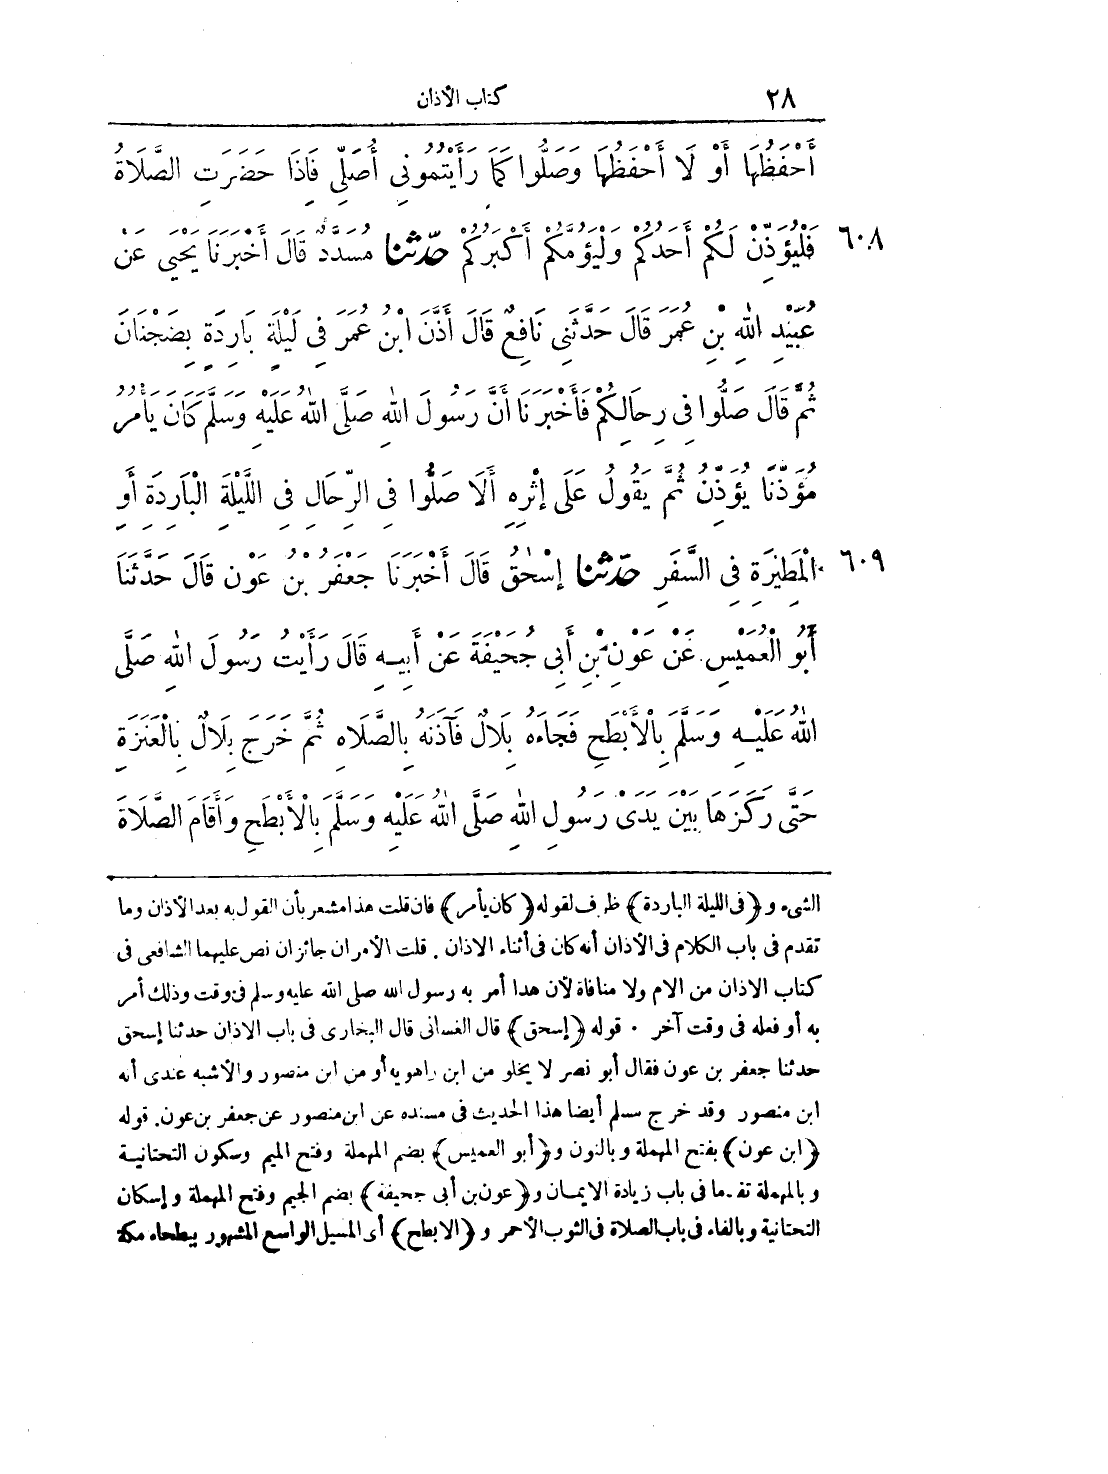 ٢٨ كتاب الأذان
أَحْفَظُهَا أَوْ لَا أَحْفَظُهَا وَصَلُّوا كَمَا رَأَيْتُمُونِى أُصَلِّى فَإِذَا حَضَرَتِ الصَّلَاةُ
٦٠٨ فَلْيُؤَذِّنْ لَكُمْ أَحَدُكُمْ وَلْيَؤُمَّكُمْ أَكْبَرُكُمْ حدّثنا مُسَدَّدٌ قَالَ أَخْبَرَنَا يَحْيَى عَنْ
عُبَيْدِ اللهِ بْنِ عُمَرَ قَالَ حَدَّثَنِى نَافِعٌ قَالَ أَذَّنَ ابْنُ عُمَرَ فِى لَيْلَةٍ بَارِدَةٍ بِضَجْنَانَ
ثُمَّ قَالَ صَلُّوا فِى رِحَالِكُمْ فَأَخْبَرَنَا أَنَّ رَسُولَ اللهِ صَلَّى اللهُ عَلَيْهِ وَسَلَّمَ كَانَ يَأْمُرُ
مُؤَذِّنًا يُؤَذِّنُ ثُمَّ يَقُولُ عَلَى إِثْرِهِ أَلَا صَلُّوا فِى الرِّحَالِ فِى اللَّيْلَةِ الْبَارِدَةِ أَوِ
٦٠٩ الْمَطِيْرَةِ فِى السَّفَرِ حدّثنا إِسْحٰقُ قَالَ أَخْبَرَنَا جَعْفَرُ بْنُ عَوْنٍ قَالَ حَدَّثَنَا
أَبُو الْعُمَيْسِ عَنْ عَوْنِ بْنِ أَبِى جُحَيْفَةَ عَنْ أَبِيهِ قَالَ رَأَيْتُ رَسُولَ اللهِ صَلَّى
اللهُ عَلَيْهِ وَسَلَّمَ بِالْأَبْطَحِ فَجَاءَهُ بِلَالٌ فَآذَنَهُ بِالصَّلَاةِ ثُمَّ خَرَجَ بِلَالٌ بِالْعَنَزَةِ
حَتَّى رَكَزَهَا بَيْنَ يَدَىْ رَسُولِ اللهِ صَلَّى اللهُ عَلَيْهِ وَسَلَّمَ بِالْأَبْطَحِ وَأَقَامَ الصَّلَاةَ
الشىء و (فى الليلة الباردة) ظرف لقوله (كان يأمر) فان قلت هذا مشعر بأن القول به بعد الأذان وما
تقدم فى باب الكلام فى الأذان أنه كان فى أثناء الاذان . قلت الأمران جائزان نص عليهما الشافعى فى
كتاب الاذان من الام ولا منافاة لأن هذا أمر به رسول الله صلى الله عليه وسلم فى وقت وذلك أمر
به أو فعله فى وقت آخر . قوله (إسحق) قال الغسانى قال البخارى فى باب الاذان حدثنا إسحق
حدثنا جعفر بن عون فقال أبو نصر لا يخلو من ابن راهويه أو من ابن منصور والأشبه عندى أنه
ابن منصور وقد خرج مسلم أيضا هذا الحديث فى مسنده عن ابن منصور عن جعفر بن عون. قوله
(ابن عون) بفتح المهملة وبالنون و (أبو العميس) بضم المهملة وفتح الميم وسكون التحتانية
وبالمهملة تقدما فى باب زيادة الايمان و (عون بن أبى جحيفة) بضم الجيم وفتح المهملة وإسكان
التحتانية وبالفاء فى باب الصلاة فى الثوب الأحمر و (الابطح) أى المسيل الواسع المشهور ببطحاء مكة